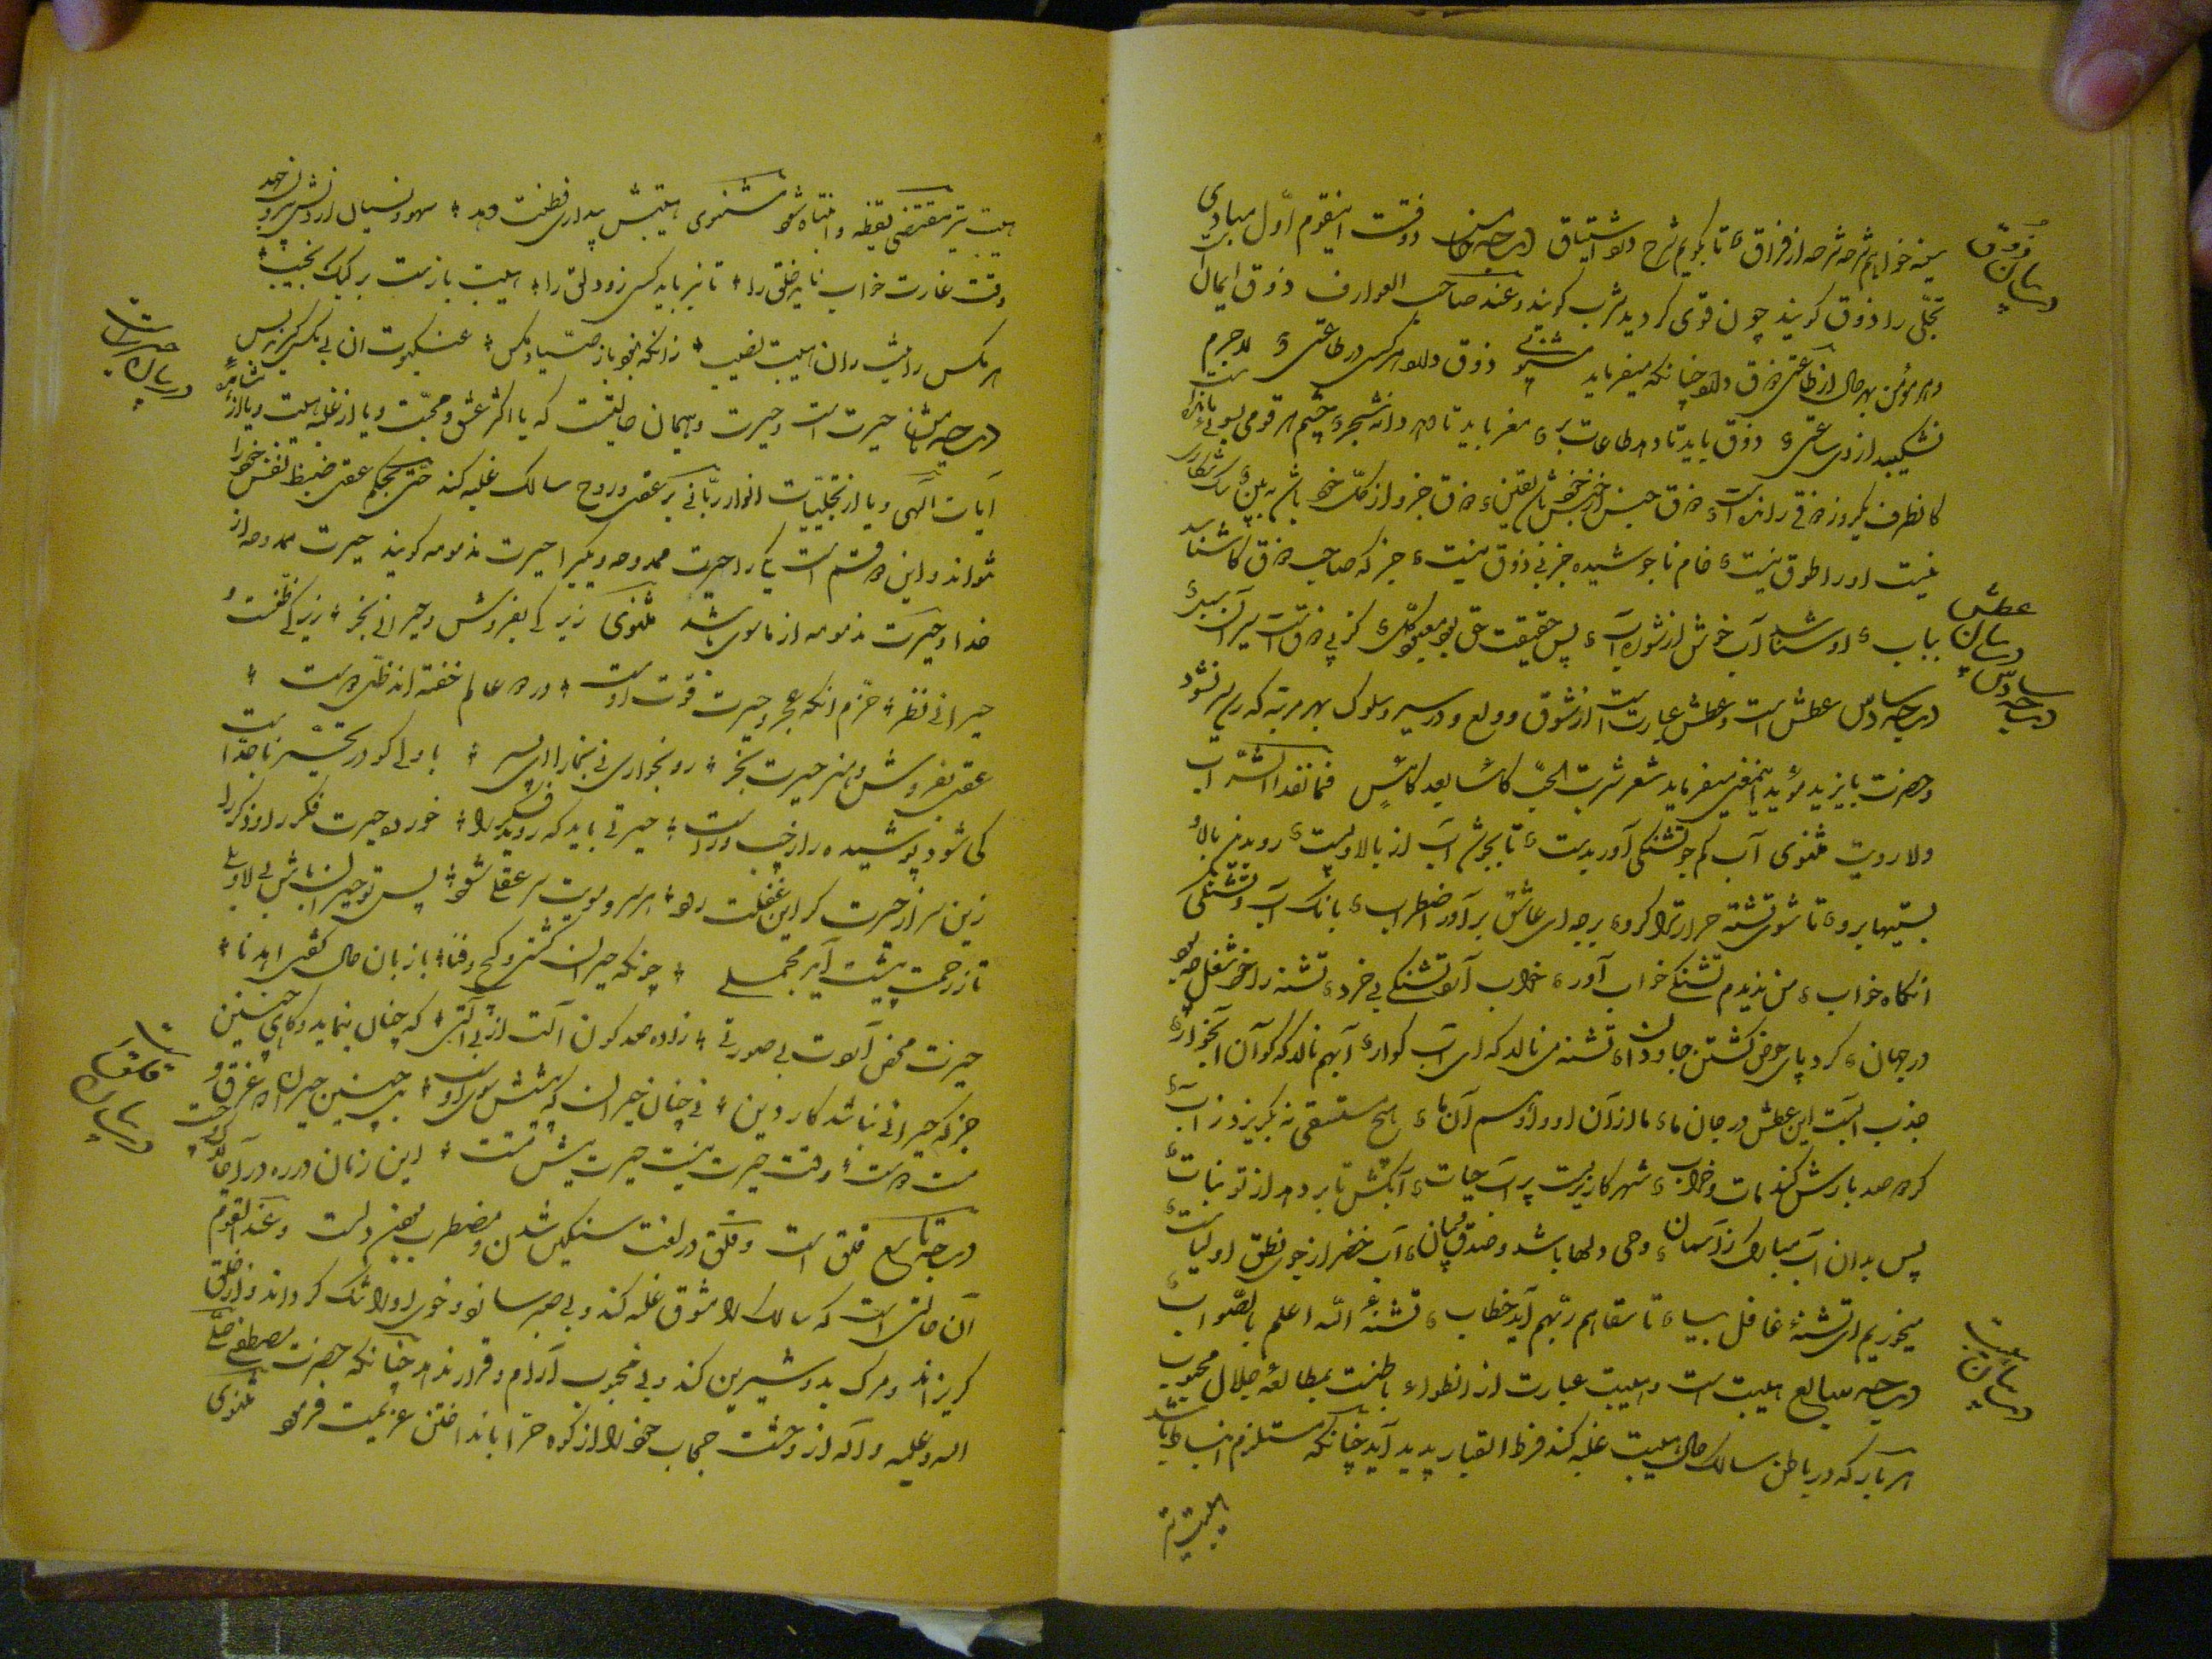 سینه خواهم شرحه شرحه از فراق تا بگویم شرح درد اشتیاق درجه خامس ذوقست اینقوم اوّل مبادی
در بیان ذوق
تجلّی را ذوق گویند چون قوی گردید شرب گویند و عند صاحب العوارف ذوق ایمان است
و هر مؤمن بهر حال از طاعتی ذوق دارد چنانکه میفرماید مثنوی ذوق دارد هر کسی در طاعتی لاجرم
نشکیبد از وی ساعتی ذوق باید تا دهد طاعات بر مغز باید تا دهد دانه شجر چشم هر قومی بسوئی مانده است
کانطرف یکروز ذوقی رانده است ذوق جنس از جنس خود باشد یقین ذوق جزو از کلّ خود باشد ببین
نیست او را طوق نیست خام ناجوشیده جز بی ذوق نیست جز که صاحب ذوق که شناسد
بیاب او شناسد آب خوش از شوره آب پس حقیقت حق بود معبود کل کز پی ذوقست سیران سبل
در بیان عطش
درجه سادس
درجه سادس عطش است و عطش عبارتست از شوق و ولع و در سیر و سلوک بهر مرتبه که رسد سیر نشود
و حضرت بایزید مؤید اینمعنی میفرماید شعر شربت الحبّ کاسًا بعد کاسٍ فما نفد الشّراب
ولا رویت مثنوی آب کم جو تشنگی آور بدست تا بجوشد آب از بالا و پست رو بدین بالا
پستیها برو تا شوی تشنه حرارت را گرو بانگ آب و تشنگی
انگاه خواب من ندیدم تشنگی خواب آورد خواب آرد تشنگی بی خرد تشنه را خود شغل چه بود
در جهان گرد پای حوض گشتن جاودان تشنه می نالد که ای آب گوار آب هم نالد که کو آن آبخوار
جذب آبست این عطش در جان ما ما از آن او و او هم آن ما هیچ مستسقی نه بگریزد ز آب
گر دو صد بارش کند مات و خراب شهر کاریزیست پر آب حیات آب کش تا بر دمد از تو نبات
پس بدان آب مبارک ز آسمان وحی دلها باشد و صدق بیان آب خضر از جوی نطق اولیاست
میخوریم ای تشنه غافل بیا تا سقاهم ربّهم آید خطاب تشنه الله اعلم بالصّواب
در بیان هیبت
درجه سابع هیبت است و هیبت عبارت از انطواء باطنست بمطالعه جلال محبوب
هر بار که در باطن سالک حال هیبت غلبه کند فرط انقباض پدید آید چنانکه مستلزم انبساط باشد
هیبت نیز
هیبت نیز مقتضی یقظه و انتباه شود مثنوی هیبتش بیداری فطنت دهد سهو و نسیان از دلش بیرون جهد
وقت غارت خواب ناید خلق را تا نبرباید کسی زو دلق را هیبت بازست بر کبک نجیب
هر مگس را نیست زان هیبت نصیب زانکه نبود باز صیّاد مگس عنکبوتان می مگس گیرند بس
در بیان حیرت
درجه ثامن حیرت است و حیرت و هیمان حالتیست که یا اکثر عشق و محبّت و یا از غلبه هیبت و یا از مشاهده
آیات الهی و یا از تجلیّات انوار ربّانی بر عقل و روح سالک غلبه کند حتّی بحکم عقل ضبط نفس خود را
نتواند و این دو قسم است یکی را حیرت ممدوحه و دیگر را حیرت مذمومه گویند حیرت ممدوحه از
خدا و حیرت مذمومه از ماسوی باشد مثنوی زیرکی بفروش و حیرانی بخر زیرکی ظنّست و
حیرانی نظر خرّم آنکه عجز و حیرت قوت اوست در دو عالم خفته اندر ظلّ دوست
عقل بفروش و هنر حیرت بخر رو بخواری نی بخارا ای پسر
کی شود پوشیده راز حیرتی باید که روبد فکر را خورده حیرت فکر را و ذکر را
زین سر از حیرت گر این عقلت رود هر سر مویت سر عقلی شود پس تو حیران باش بی لا و بلی
تا ز رحمت پیشت آید محملی چونکه حیران گشتی و گیج و فنا با زبان حال گفتی اهدنا
حیرت محض آردت بی صورتی زاده صد گون آلت از بی آلتی که چنان بنماید و گه ضد این
جز که حیرانی نباشد کار دین نی چنان حیران که پشتش سوی اوست بل چنین حیران و غرق و
مست دوست وقت حیرت نیست حیرت پیش تست این زمان در ره در آ چالاک و چست
در بیان قلق
درجه تاسع قلق است و قلق در لغت سنگین شدن و مضطرب بودن دلست و عند القوم
آن حالتی است که سالک را شوق غلبه کند و بی صبر سازد و خوی او را تنگ گرداند و از خلق
گریزاند و مرگ بدو شیرین کند و بی محبوب آرام و قرار ندهد چنانکه حضرت مصطفی صلّی
الله علیه و آله از وحشت حجاب خود را از کوه حرّا باند اختن عزیمت فرمود مثنوی